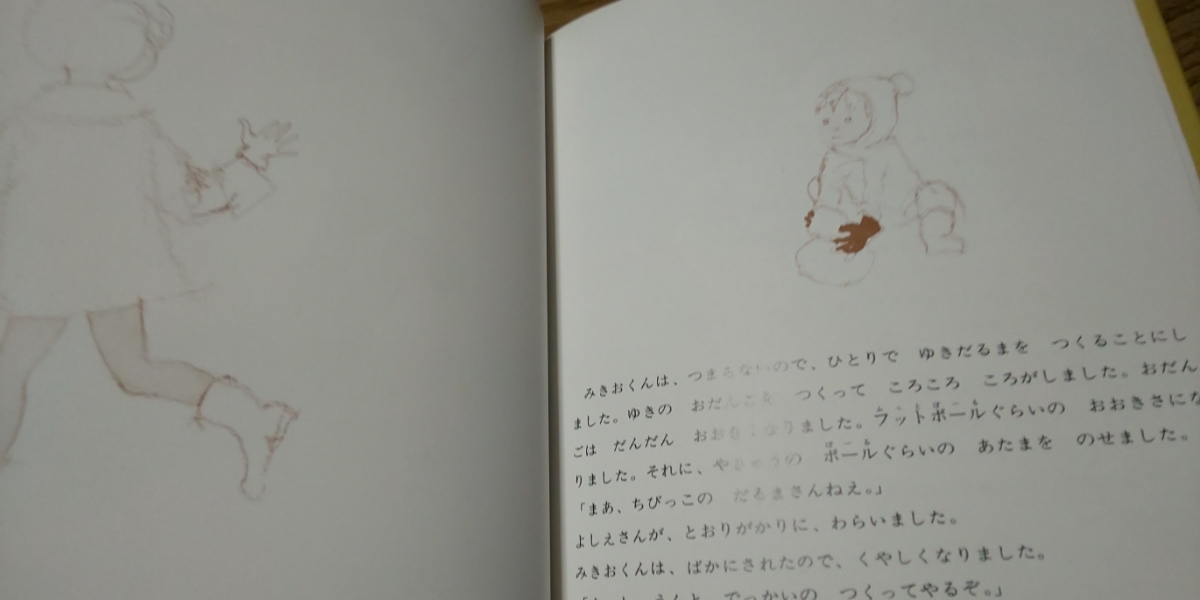 みきおくんは、つまらないので、ひとりで ゆきだるまを つくることにし
ました。ゆきの おだんごを つくって ころころ ころがしました。おだん
ごは だんだん おおきくなりました。フットボールぐらいの おおきさにな
りました。それに、やきゅうの ボールぐらいの あたまを のせました。
「まあ、ちびっこの だるまさんねえ。」
よしえさんが、とおりがかりに、わらいました。
みきおくんは、ばかにされたので、くやしくなりました。
でっかいの つくってやるぞ。」